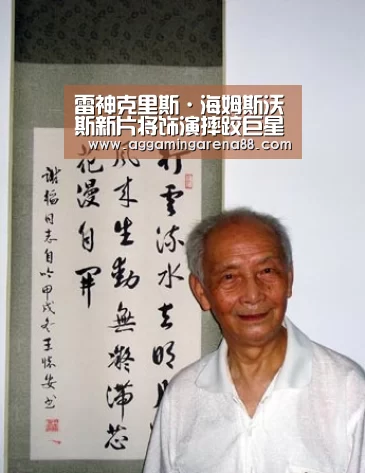 雷神克里斯·海姆斯沃
斯新片将饰演摔跤巨星
www.aggamingarena88.com
行雲流水去明月
風来生動無凝滞
花漫自開
同志自
甲戌冬王怀安书